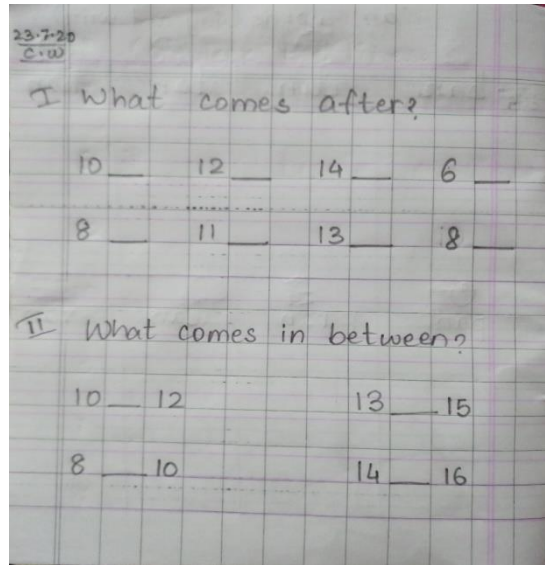 23.7.20
C.W
I What comes after?
10 __ 12 __ 14 __ 6 __
8 __ 11 __ 13 __ 8 __
II What comes in between?
10 __ 12 13 __ 15
8 __ 10 14 __ 16